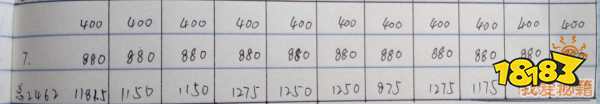 400 400 400 400 400 400 400 400 400 400 400
7. 880 880 880 880 880 880 880 880 880 880
2462 1181.5 1150 1150 1275 1250 1250 875 1275 1175
18183